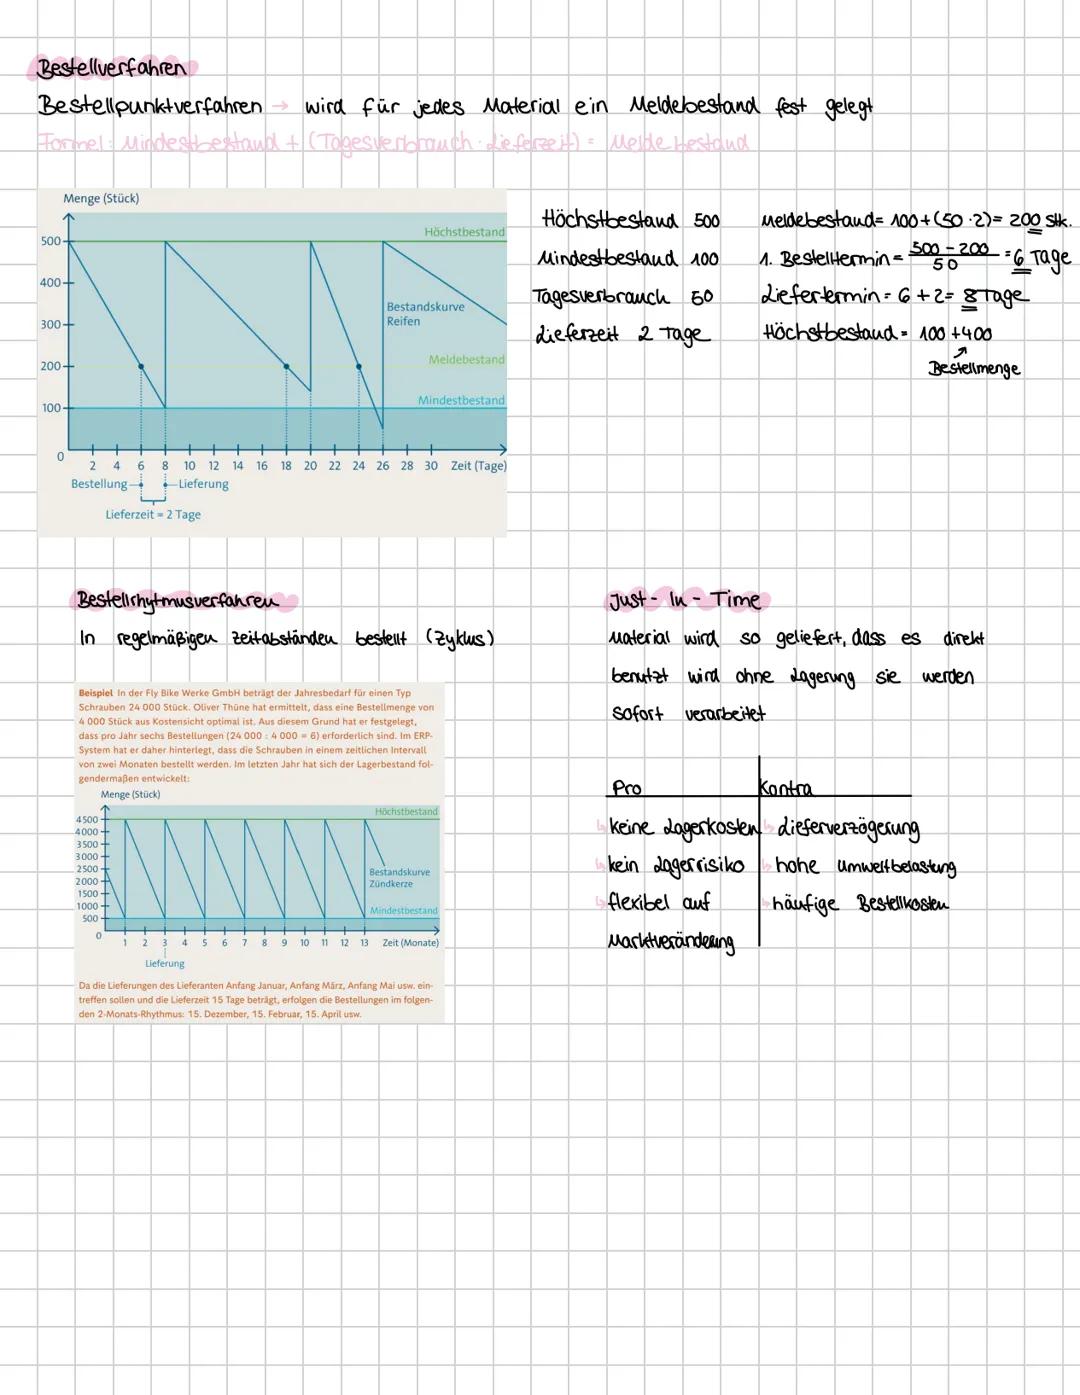 Bestellverfahren
Bestellpunktverfahren → wird für jedes Material ein Meldebestand fest gelegt
Formel: Mindestbestand + (Tagesverbrauch · Lieferzeit) = Meldebestand
Menge (Stück)
Höchstbestand
500
400
Bestandskurve
Reifen
300
Meldebestand
200
Mindestbestand
100
0
2 4 6 8 10 12 14 16 18 20 22 24 26 28 30 Zeit (Tage)
Bestellung Lieferung
Lieferzeit = 2 Tage
Höchstbestand 500
Mindestbestand 100
Tagesverbrauch 50
Lieferzeit 2 Tage
Meldebestand = 100 + (50 · 2) = 200 Stk.
1. Bestelltermin = 500 - 200 / 50 = 6 Tage
Liefertermin = 6 + 2 = 8 Tage
Höchstbestand = 100 + 400
Bestellmenge
Bestellrhytmusverfahren
In regelmäßigen Zeitabständen bestellt (Zyklus)
Beispiel In der Fly Bike Werke GmbH beträgt der Jahresbedarf für einen Typ
Schrauben 24 000 Stück. Oliver Thüne hat ermittelt, dass eine Bestellmenge von
4 000 Stück aus Kostensicht optimal ist. Aus diesem Grund hat er festgelegt,
dass pro Jahr sechs Bestellungen (24 000 : 4 000 = 6) erforderlich sind. Im ERP-
System hat er daher hinterlegt, dass die Schrauben in einem zeitlichen Intervall
von zwei Monaten bestellt werden. Im letzten Jahr hat sich der Lagerbestand fol-
gendermaßen entwickelt:
Menge (Stück)
Höchstbestand
4500
4000
3500
3000
2500
2000
1500
1000
500
0
Bestandskurve
Zündkerze
Mindestbestand
1 2 3 4 5 6 7 8 9 10 11 12 13 Zeit (Monate)
Lieferung
Da die Lieferungen des Lieferanten Anfang Januar, Anfang März, Anfang Mai usw. ein-
treffen sollen und die Lieferzeit 15 Tage beträgt, erfolgen die Bestellungen im folgen-
den 2-Monats-Rhythmus: 15. Dezember, 15. Februar, 15. April usw.
Just - In - Time
Material wird so geliefert, dass es direkt
benutzt wird ohne Lagerung sie werden
sofort verarbeitet
Pro Kontra
↳ keine Lagerkosten ↳ Lieferverzögerung
↳ kein Lagerrisiko ↳ hohe Umweltbelastung
↳ flexibel auf ↳ häufige Bestellkosten
Marktveränderung